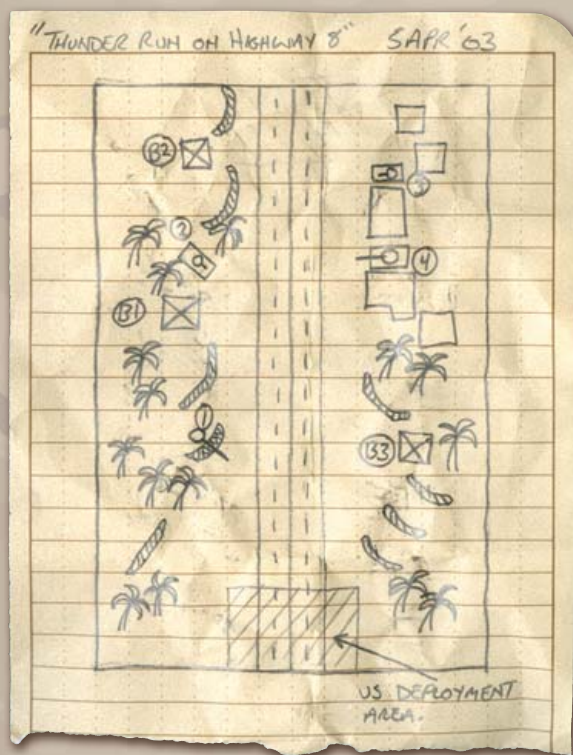 "THUNDER RUN ON HIGHWAY 8" 5 APR '03
B2
3
2
4
B1
1
B3
US DEPLOYMENT
AREA.